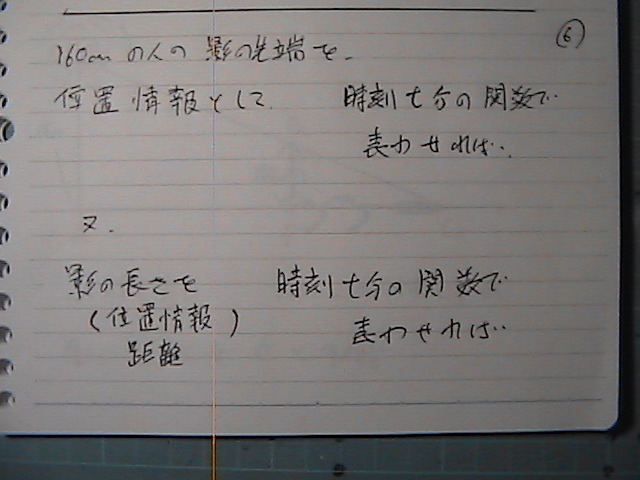 ⑥
160cmの人の影の先端を、
位置情報として 時刻t分の関数で
表わせれば、
又、
影の長さを 時刻t分の関数で
(位置情報) 表わせれば…
距離